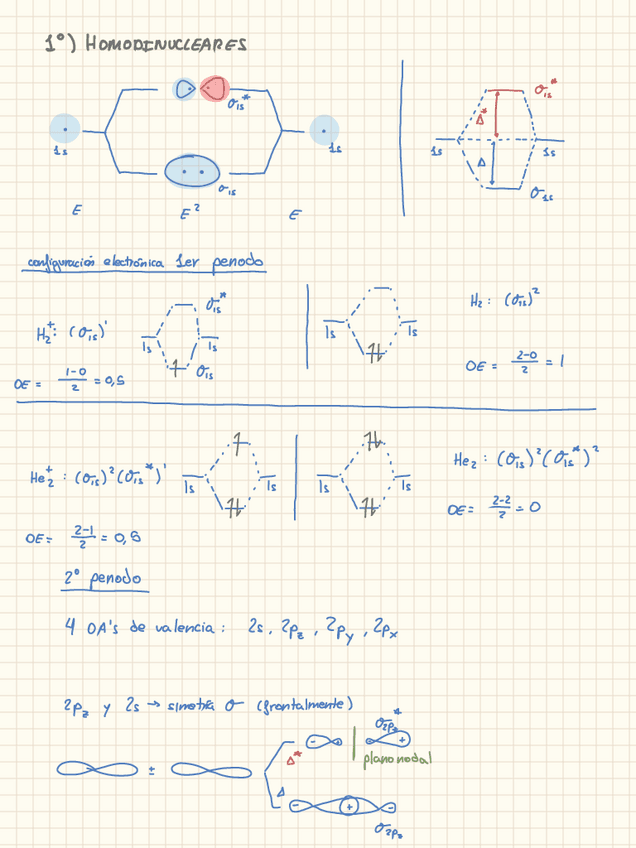 1º) HOMODINUCLEARES
σ1s*
1s
1s
σ1s
E E² E
σ1s*
Δ*
1s 1s
Δ
σ1s
configuración electrónica 1er periodo
H₂⁺: (σ1s)¹
σ1s*
1s 1s
σ1s
OE = 1-0/2 = 0,5
1s 1s
H₂ : (σ1s)²
OE = 2-0/2 = 1
He₂⁺ : (σ1s)² (σ1s*)¹
1s 1s
OE = 2-1/2 = 0,5
1s 1s
He₂ : (σ1s)² (σ1s*)²
OE = 2-2/2 = 0
2º periodo
4 OA's de valencia : 2s, 2pz, 2py, 2px
2pz y 2s → simetría σ (frontalmente)
σ2pz*
- + - +
plano nodal
±
Δ*
Δ
- + -
σ2pz